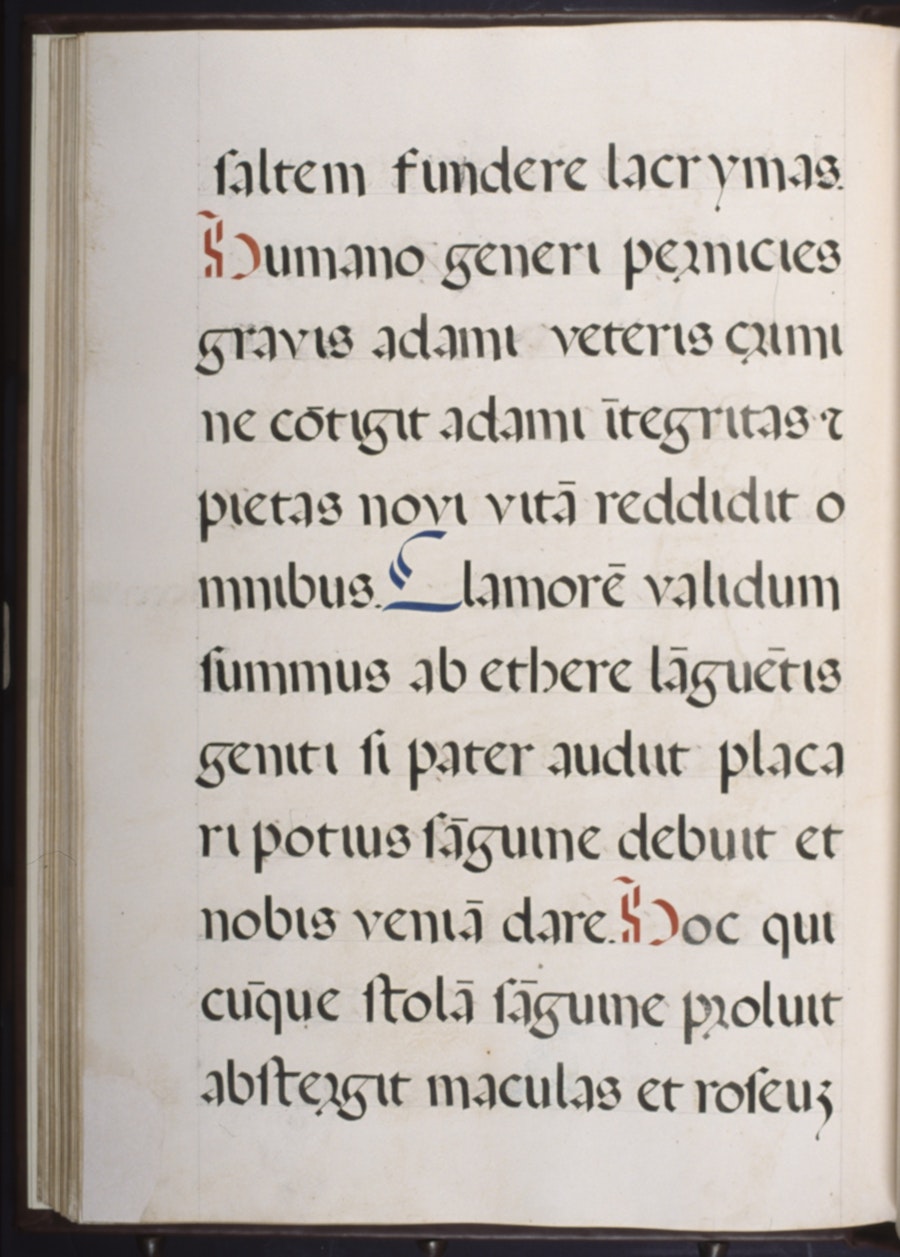 ſaltem fundere lacrymas.
Humano generi pernicies
gravis adami veteris crimi
ne cōtigit adami ītegritas ⁊
pietas novi vitā reddidit o
mnibus. Clamorē validum
ſummus ab ethere lāguētis
geniti ſi pater audiit placa
ri potius ſāguine debuit et
nobis veniā dare. Hoc qui
cūque ſtolā ſāguine proluit
abſtergit maculas et roſeuʒ